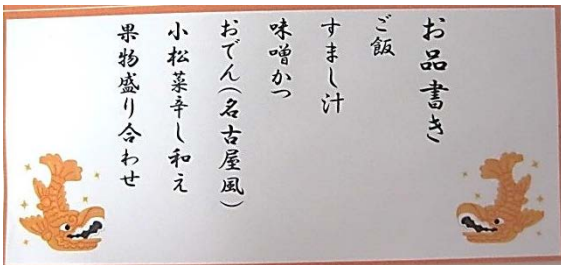 お品書き
ご飯
すまし汁
味噌かつ
おでん(名古屋風)
小松菜辛し和え
果物盛り合わせ